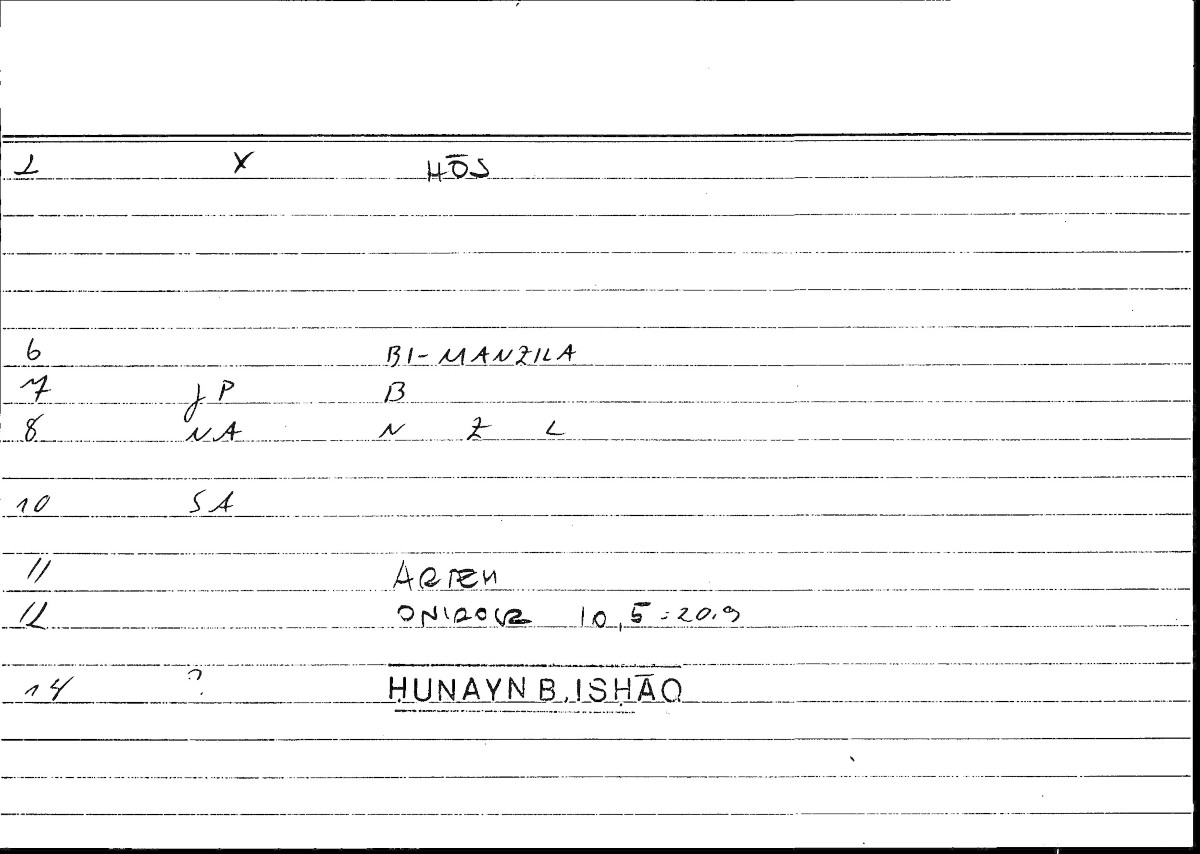 1 X HŌS
6 BI-MANZILA
7 JP B
8 NA N Z L
10 SA
11 ARTEM
12 ONIROCR 10,5 = 20.9
14 ? ḤUNAYN B. ISḤĀQ